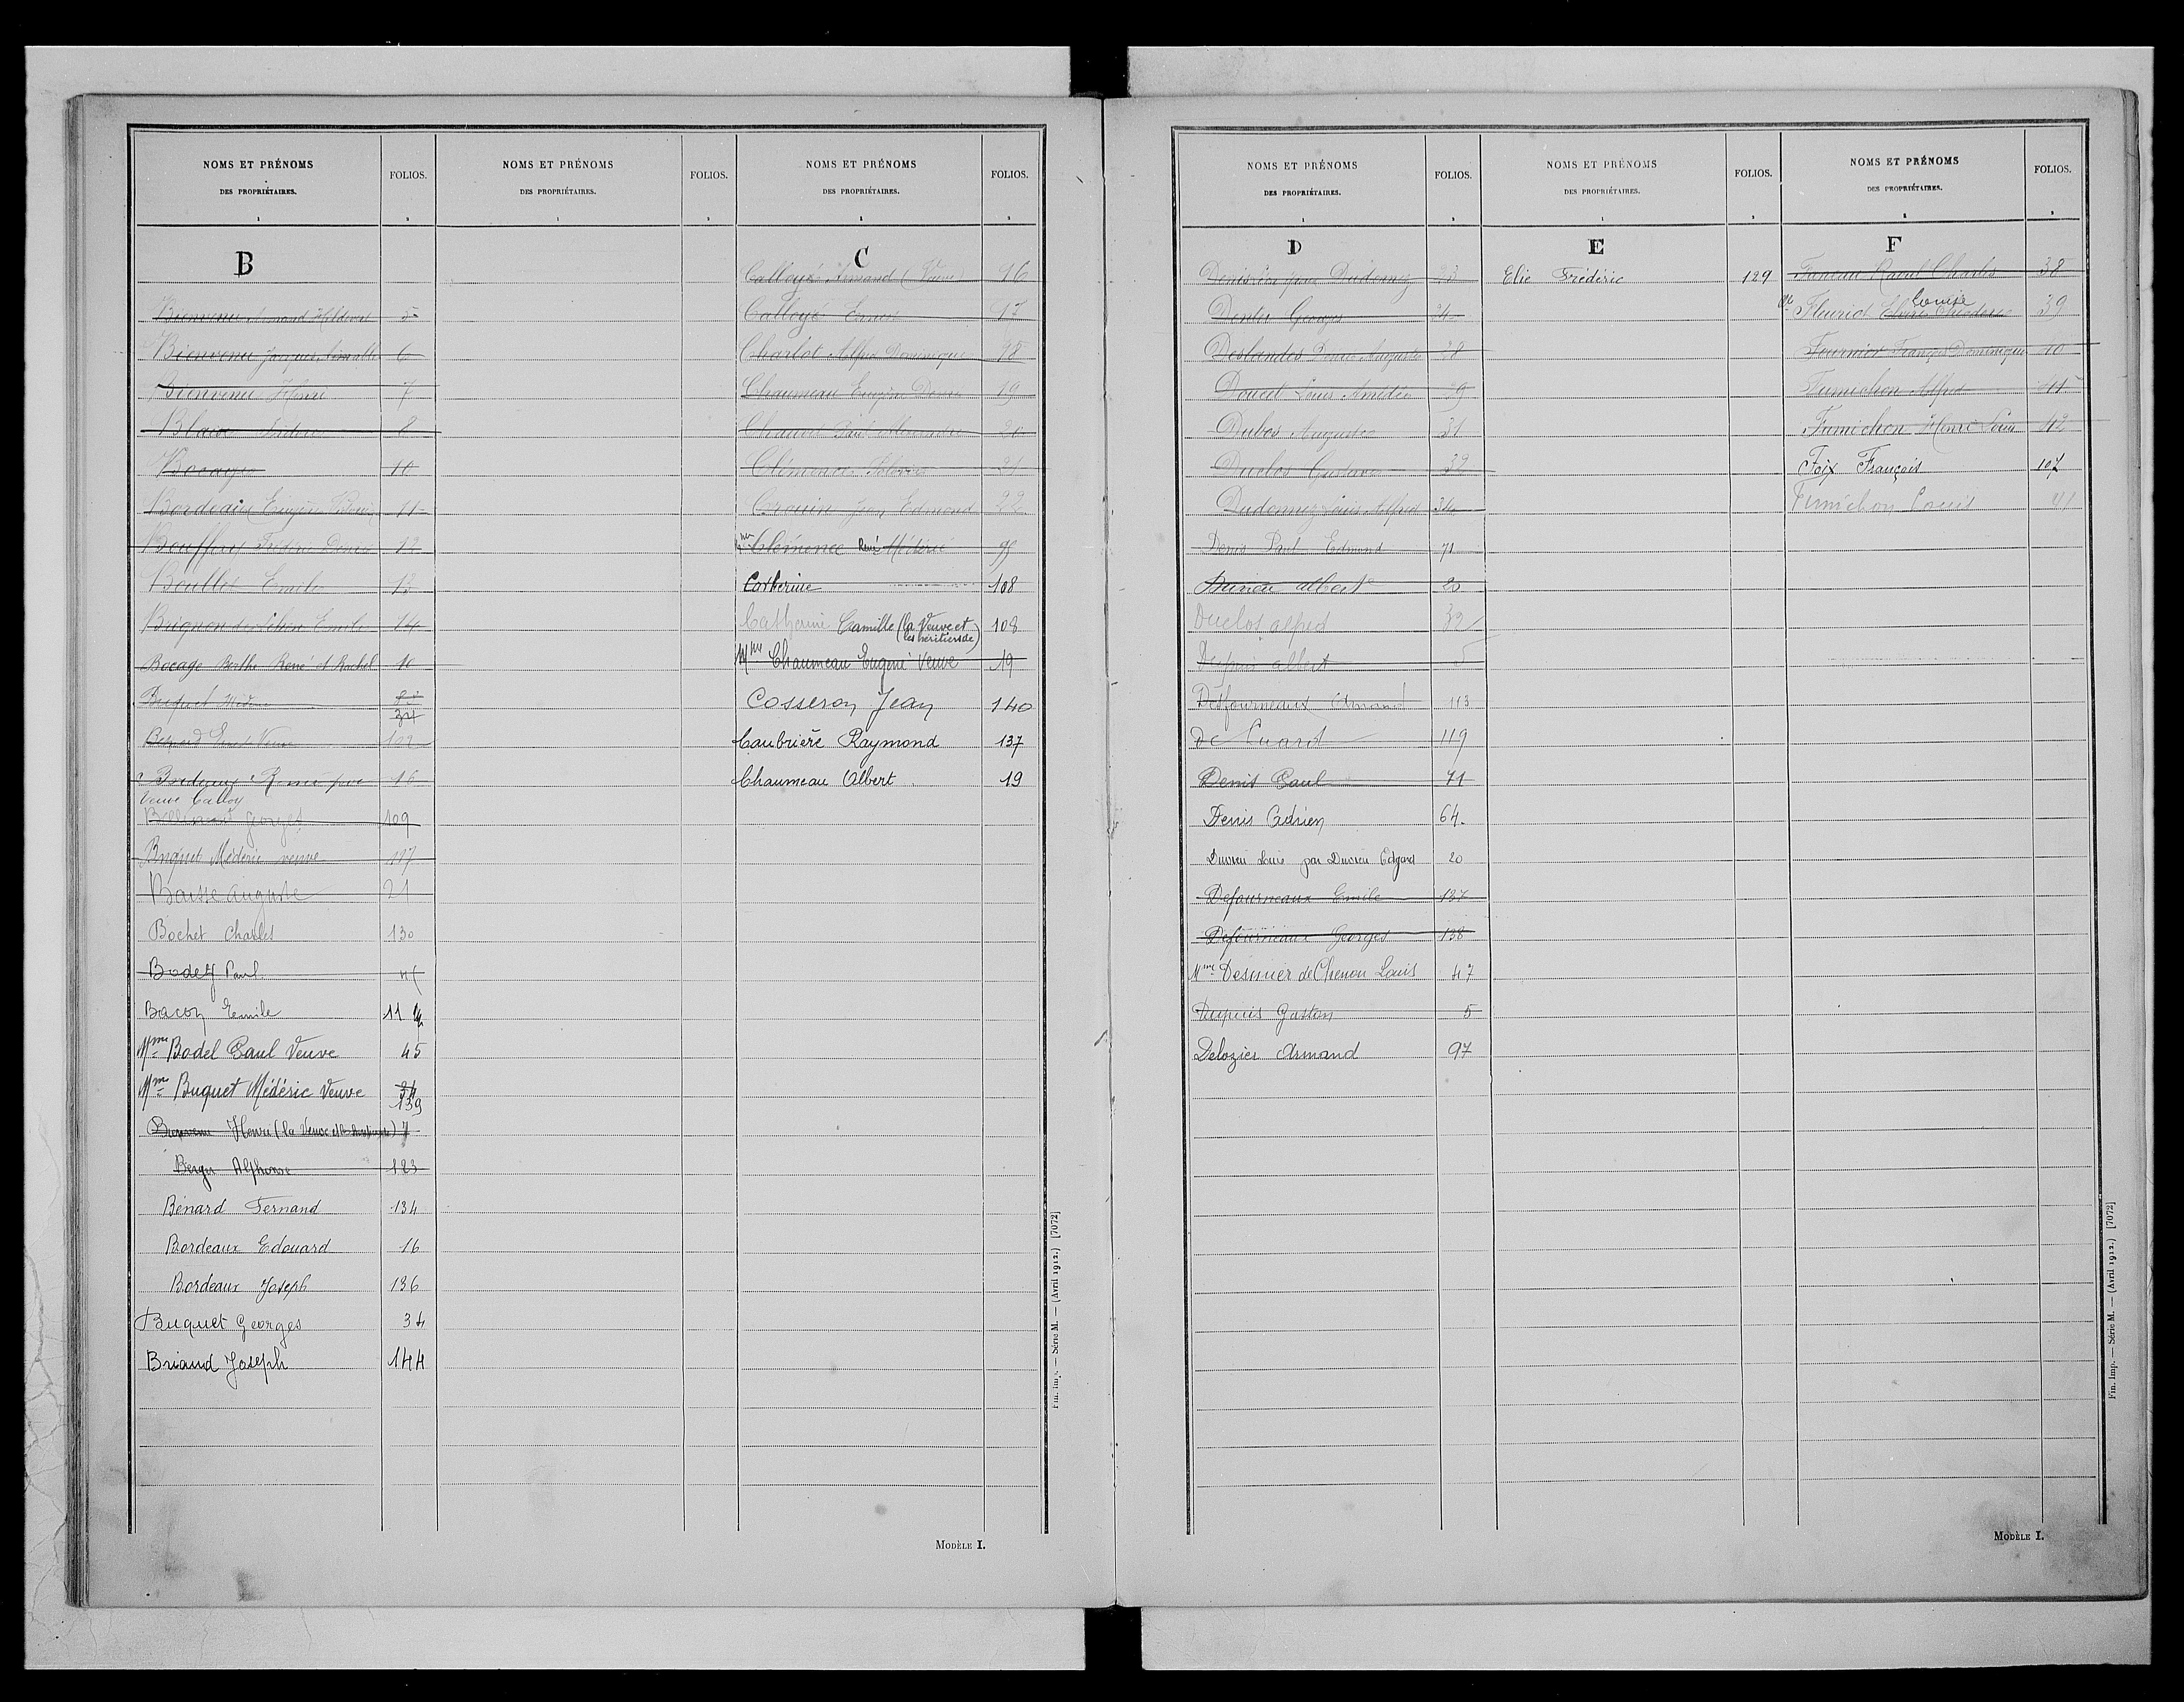 NOMS ET PRÉNOMS
DES PROPRIÉTAIRES.
1
FOLIOS.
2
NOMS ET PRÉNOMS
DES PROPRIÉTAIRES.
1
FOLIOS.
2
NOMS ET PRÉNOMS
DES PROPRIÉTAIRES.
1
FOLIOS.
2
B
Bienvenu Armand 5
Bienvenu Jacques Aimable 6
Bienvenu Henri 7
Blaise 8
Bocage 10
Bordeaux Eugène 11
Frédéric Denis 12
Boullet Emile 13
Brignon Emile 14
Bocage Berthe René et Rachel 10
Buquet 34
Veuve 102
Bordeaux 16
Veuve Calloy
Georges 109
Buquet Médéric veuve 117
Baisse Auguste 21
Bochet Charles 130
Bodel Paul 45
Bacon Emile 11
Mme Bodel Paul Veuve 45
Mme Buquet Médéric Veuve 34
139
Bienvenu Henri (la Veuve 7
Berger Alphonse 123
Bénard Fernand 134
Bordeaux Edouard 16
Bordeaux Joseph 136
Buquet Georges 34
Briand Joseph 144
C
Calloyé Armand (Veuve) 16
Calloyé Ernest 17
Charlot Alfred Dominique 18
Chaumeau Eugène 19
Chauvet Paul Alexandre 20
Clémence 21
Crouin Jean Edmond 22
Clémence René Médéric 95
Catherine 108
Catherine Camille (la Veuve et
les héritiers de) 108
Chaumeau Eugène Veuve 19
Cosseron Jean 140
Caubrière Raymond 137
Chaumeau Albert 19
Fin. Imp. — Série M. — (Avril 1912.) [7072]
MODÈLE I.
NOMS ET PRÉNOMS
DES PROPRIÉTAIRES.
1
FOLIOS.
2
NOMS ET PRÉNOMS
DES PROPRIÉTAIRES.
1
FOLIOS.
2
NOMS ET PRÉNOMS
DES PROPRIÉTAIRES.
1
FOLIOS.
2
D
Denis Léon pour Dudonney 23
Georges 24
Deslandes Auguste 28
Doucet Louis Amédée 29
Dubos Auguste 31
Duclos Gustave 32
Dudonney Louis Alfred 34
Denis Paul Edmond 71
Durieu Albert 20
Duclos Alfred 32
Dupuis Albert 5
Desfourneaux Armand 113
119
Denis Paul 71
Denis Adrien 64
Durieu par Durieu Edgard 20
Defourneaux Emile 137
Defourneaux Georges 138
Mme Desmier de Chenon Louis 47
Dupuis Gaston 5
Delozier Armand 97
E
Elie Frédéric 129
F
Raoul Charles 38
Louise
Fleuriot 39
Fournier François Dominique 40
Fumichon Alfred 41
Fumichon Henri Louis 42
Foix François 107
Fumichon Louis 41
Fin. Imp. — Série M. — (Avril 1912.) [7072]
MODÈLE I.